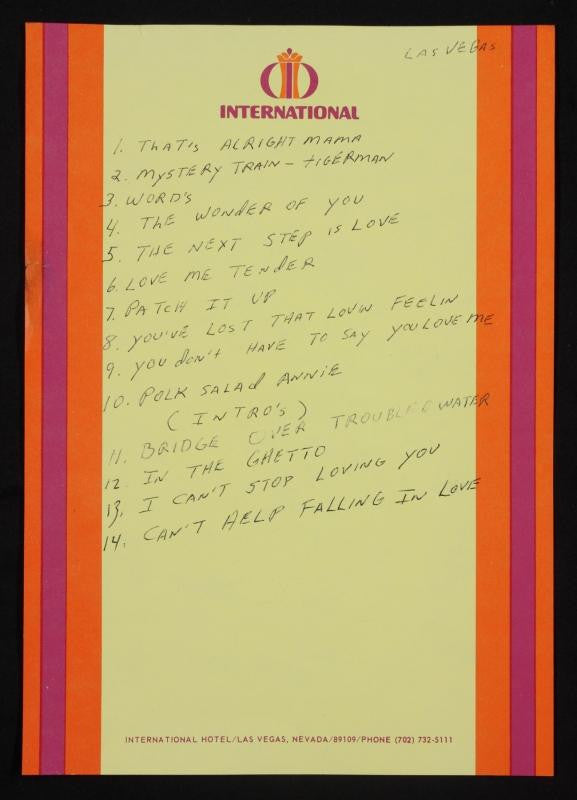 LAS VEGAS
INTERNATIONAL
1. THAT'S ALRIGHT MAMA
2. MYSTERY TRAIN - TIGERMAN
3. WORD'S
4. THE WONDER OF YOU
5. THE NEXT STEP IS LOVE
6. LOVE ME TENDER
7. PATCH IT UP
8. YOU'VE LOST THAT LOVIN FEELIN
9. YOU DON'T HAVE TO SAY YOU LOVE ME
10. POLK SALAD ANNIE
(INTRO'S)
11. BRIDGE OVER TROUBLED WATER
12. IN THE GHETTO
13. I CAN'T STOP LOVING YOU
14. CAN'T HELP FALLING IN LOVE
INTERNATIONAL HOTEL/LAS VEGAS, NEVADA/89109/PHONE (702) 732-5111